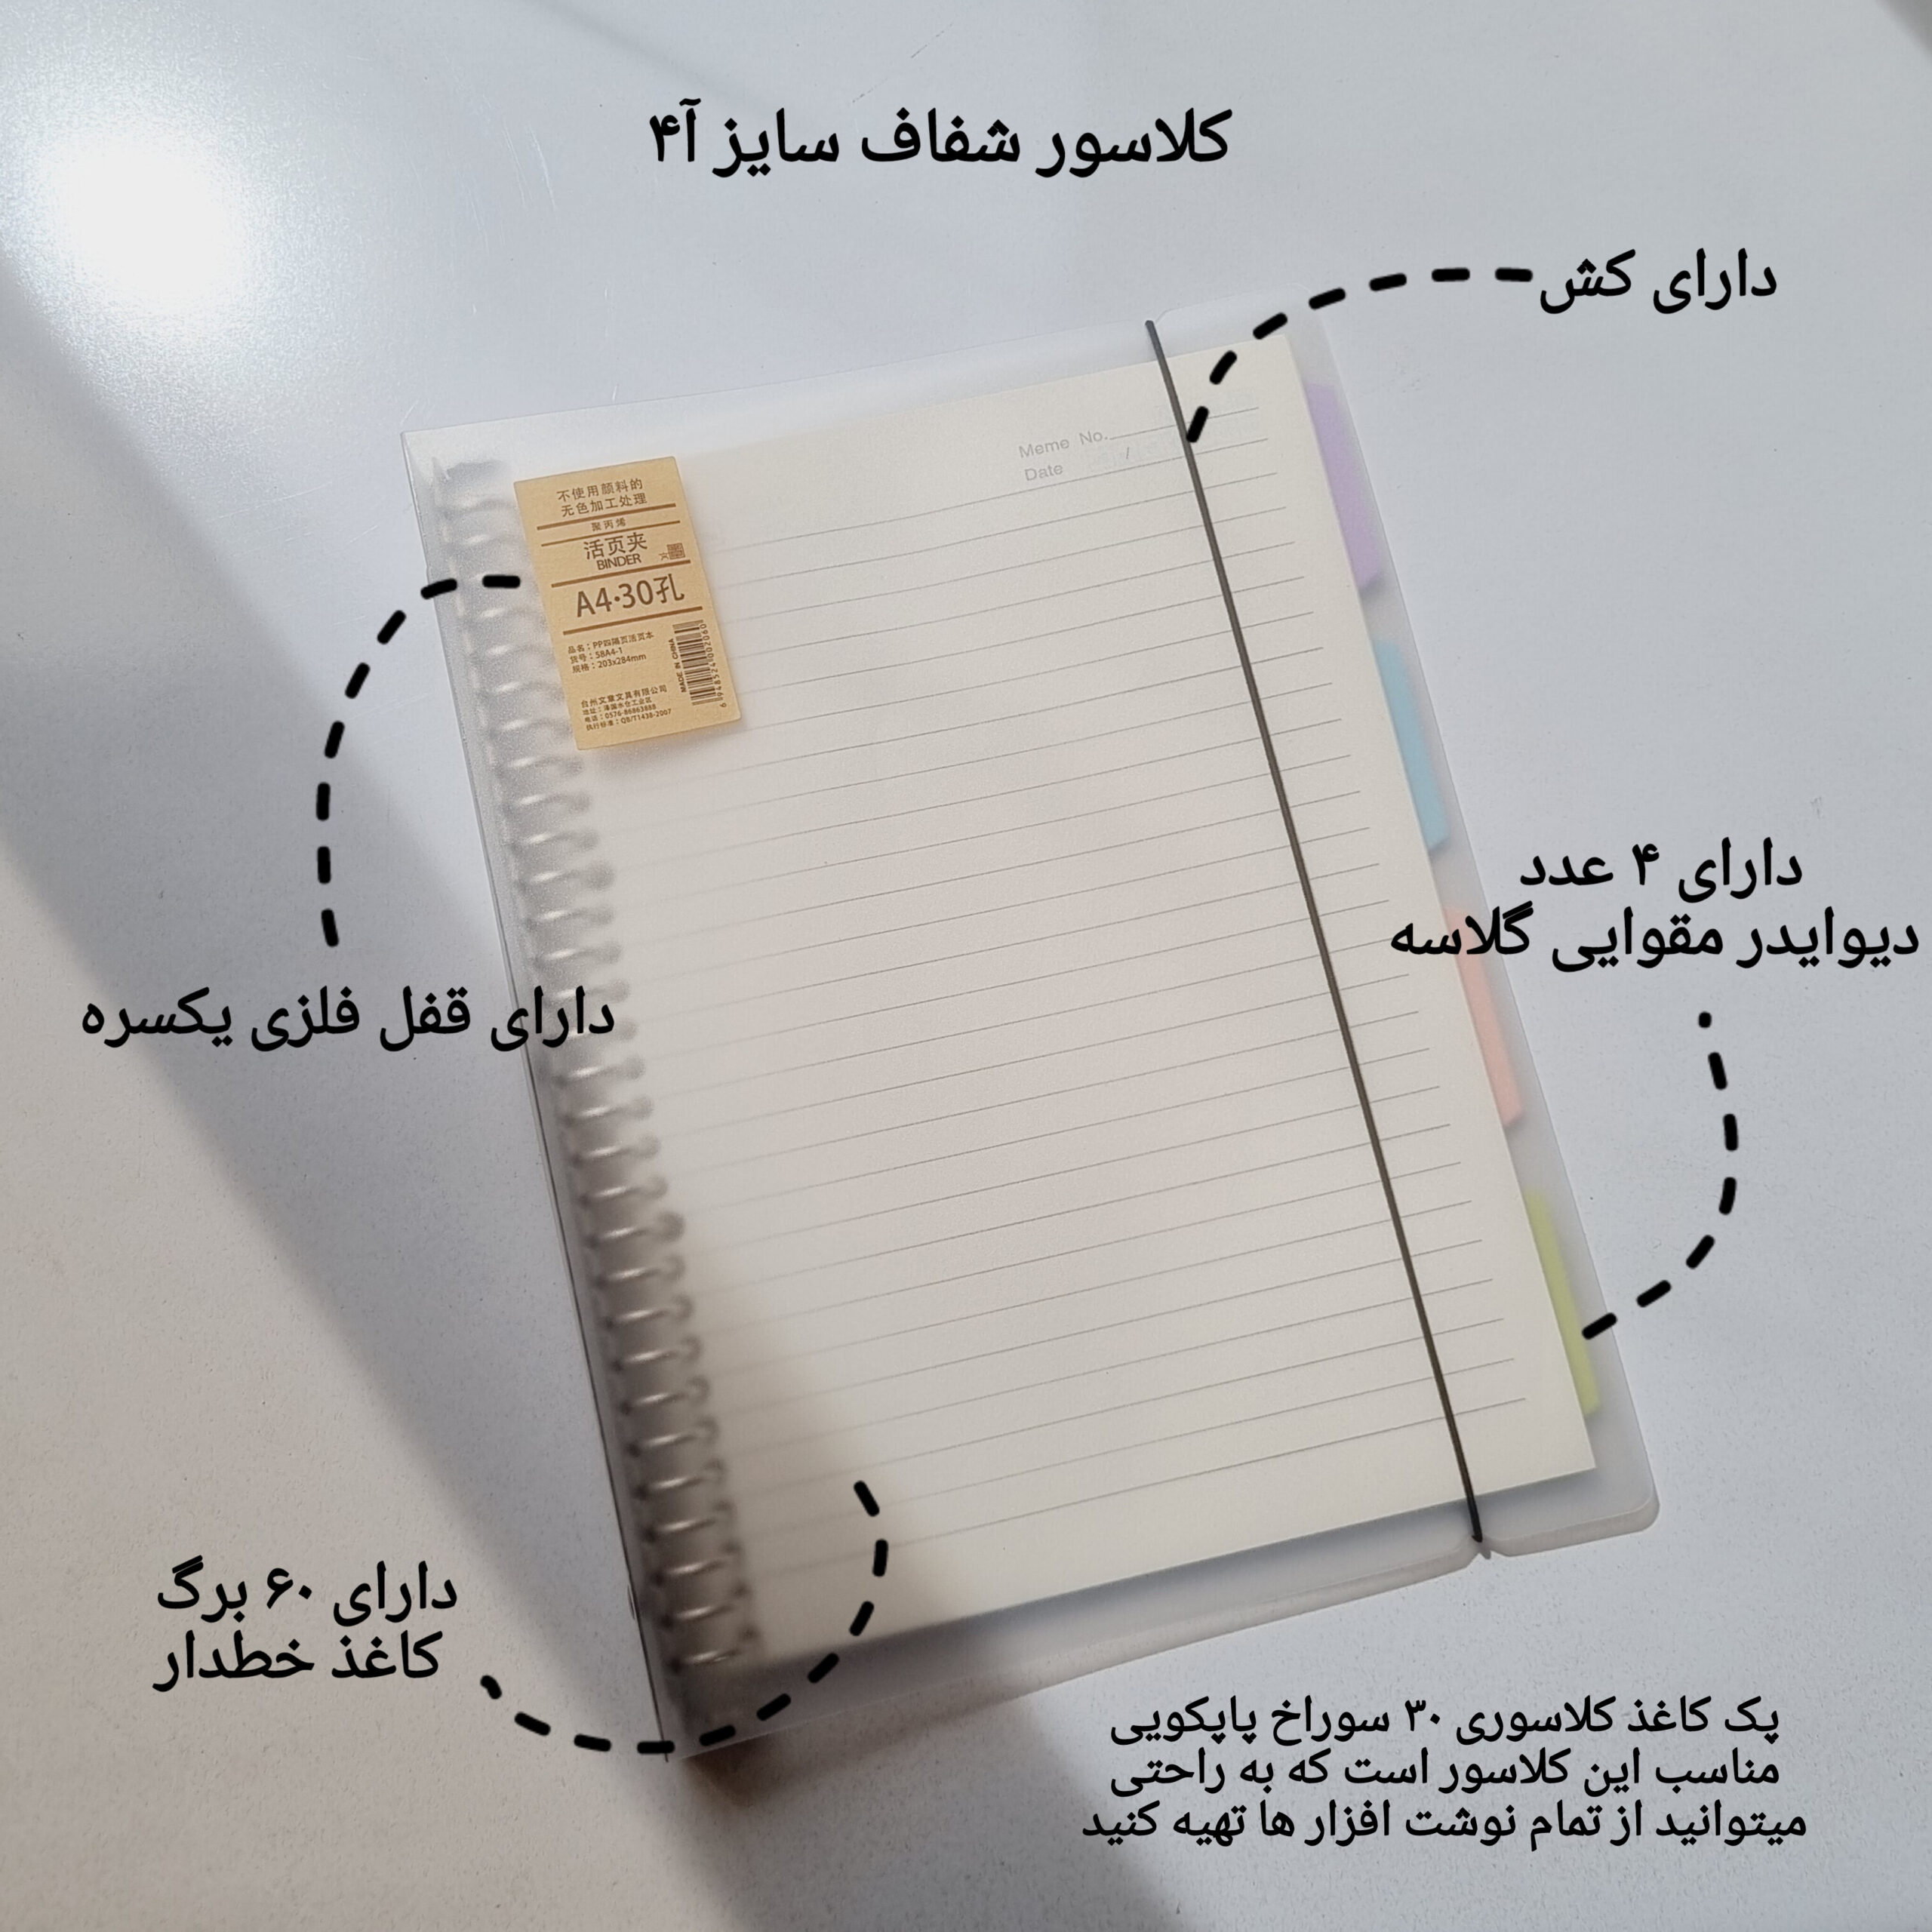 کلاسور شفاف سایز آ۴
دارای کش
Meme No.
Date /
不使用颜料的
无色加工处理
聚丙烯
活页夹
BINDER
A4·30孔
品名：PP四隔页活页本
货号：58A4-1
规格：203x284mm
MADE IN CHINA
台州文章文具有限公司
电话：0576-86863888
执行标准：QB/T1438-2007
دارای ۴ عدد
دیوایدر مقوایی گلاسه
دارای قفل فلزی یکسره
دارای ۶۰ برگ
کاغذ خطدار
پک کاغذ کلاسوری ۳۰ سوراخ پاپکویی
مناسب این کلاسور است که به راحتی
میتوانید از تمام نوشت افزار ها تهیه کنید